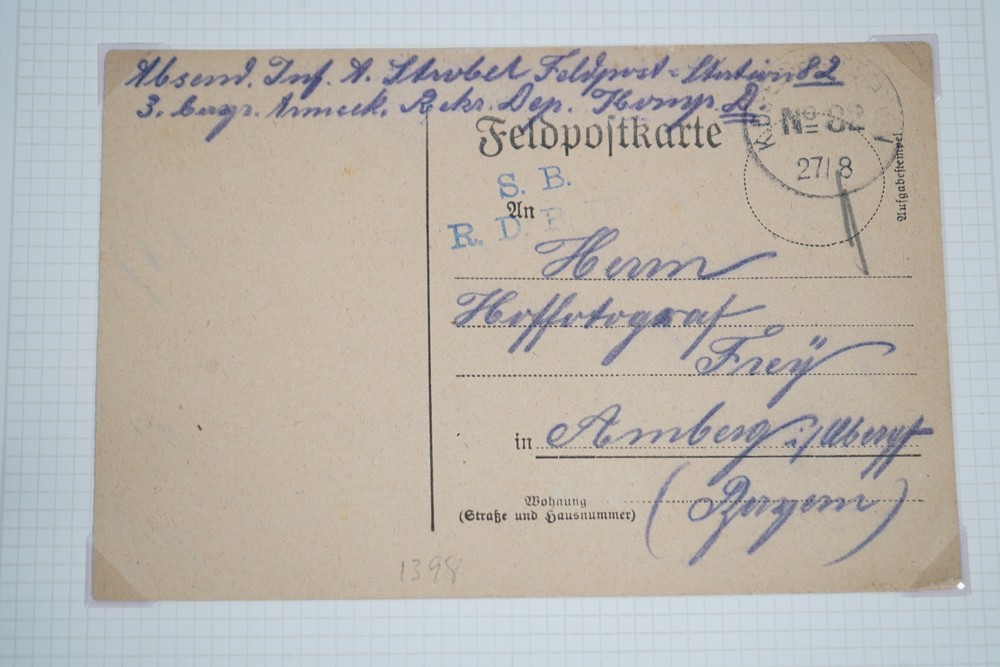 Absend. Inf. A. Strobel Feldpost-Station 82
3. bayr. Armeek. Rekr. Dep. Komp. D.
Feldpostkarte
No 82
27/8
Aufgabestempel
S. B.
An
R. D.
Herrn
Hoffotograf
Frey
in Amberg i/Oberpf
Wohnung
(Straße und Hausnummer)
(Bayern)
1398